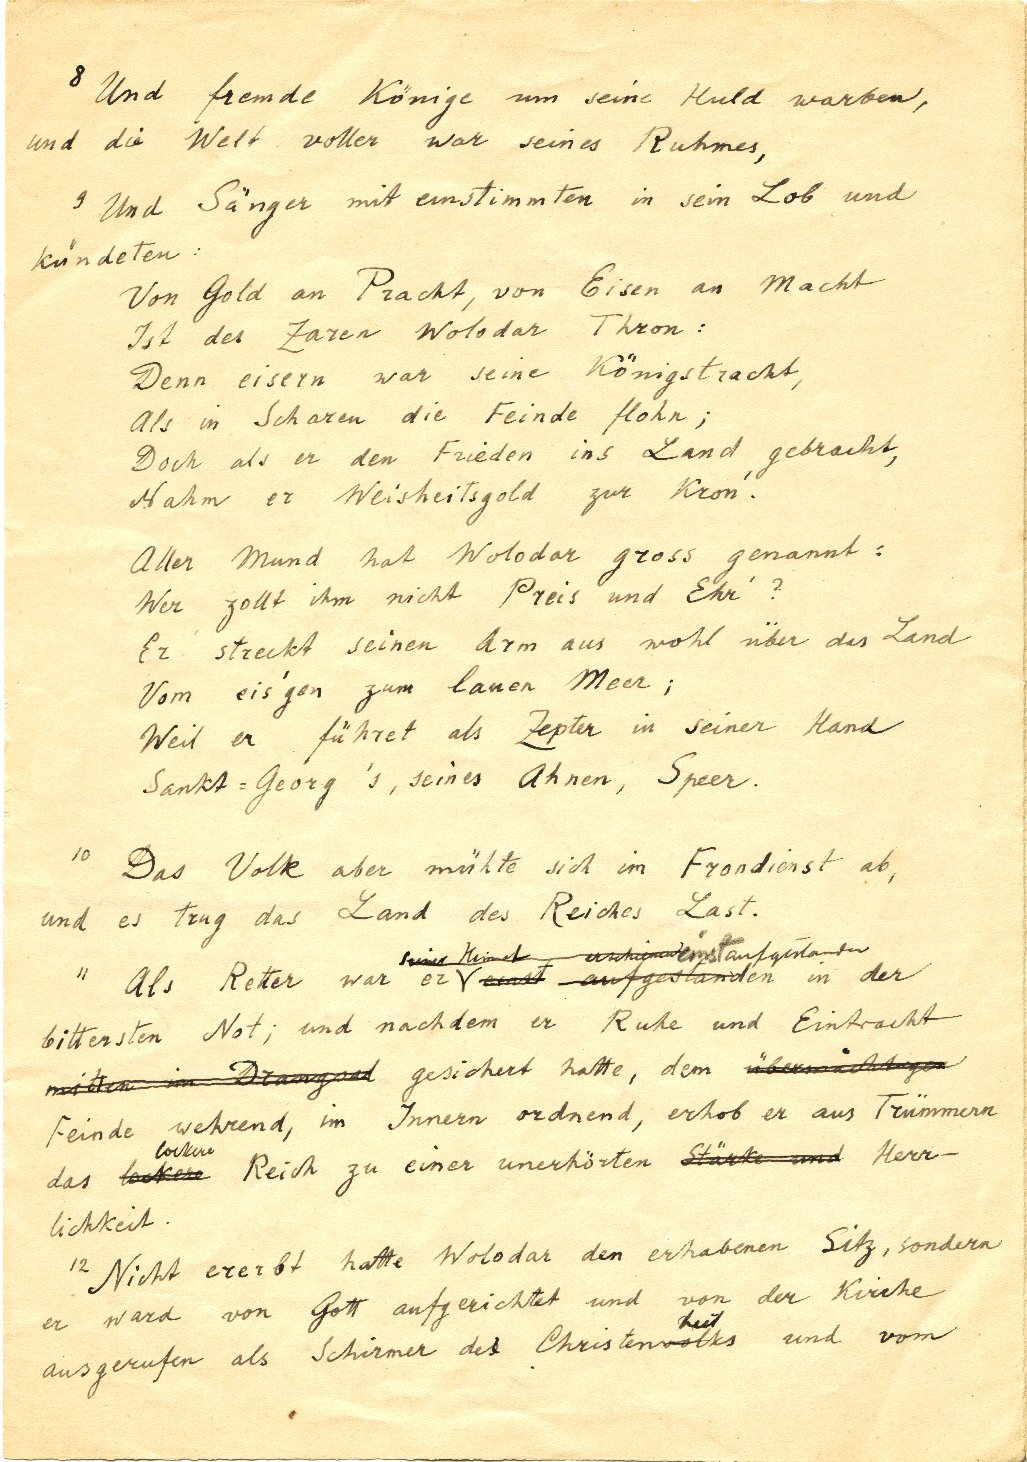 8 Und fremde Könige um seine Huld warben,
und die Welt voller war seines Ruhmes,
9 Und Sänger mit einstimmten in sein Lob und
kündeten:
Von Gold an Pracht, von Eisen an Macht
Ist des Zaren Wolodar Thron:
Denn eisern war seine Königstracht,
Als in Scharen die Feinde flohn;
Doch als er den Frieden ins Land gebracht,
Nahm er Weisheitsgold zur Kron'.
Aller Mund hat Wolodar gross genannt:
Wer zollt ihm nicht Preis und Ehr'?
Er streckt seinen Arm aus wohl über das Land
Vom eis'gen zum lauen Meer;
Weil er führet als Zepter in seiner Hand
Sankt=Georg's, seines Ahnen, Speer.
10 Das Volk aber mühte sich im Frondienst ab,
und es trug das Land des Reiches Last.
seiner Heimat einst aufgestanden
11 Als Retter war er einst aufgestanden in der
bittersten Not; und nachdem er Ruhe und Eintracht
mitten im Drangsal gesichert hatte, dem übermächtigen
Feinde wehrend, im Innern ordnend, erhob er aus Trümmern
lockere
das lockere Reich zu einer unerhörten Stärke und Herr-
lichkeit.
12 Nicht ererbt hatte Wolodar den erhabenen Sitz, sondern
er ward von Gott aufgerichtet und von der Kirche
heit
ausgerufen als Schirmer der Christenvolks und vom